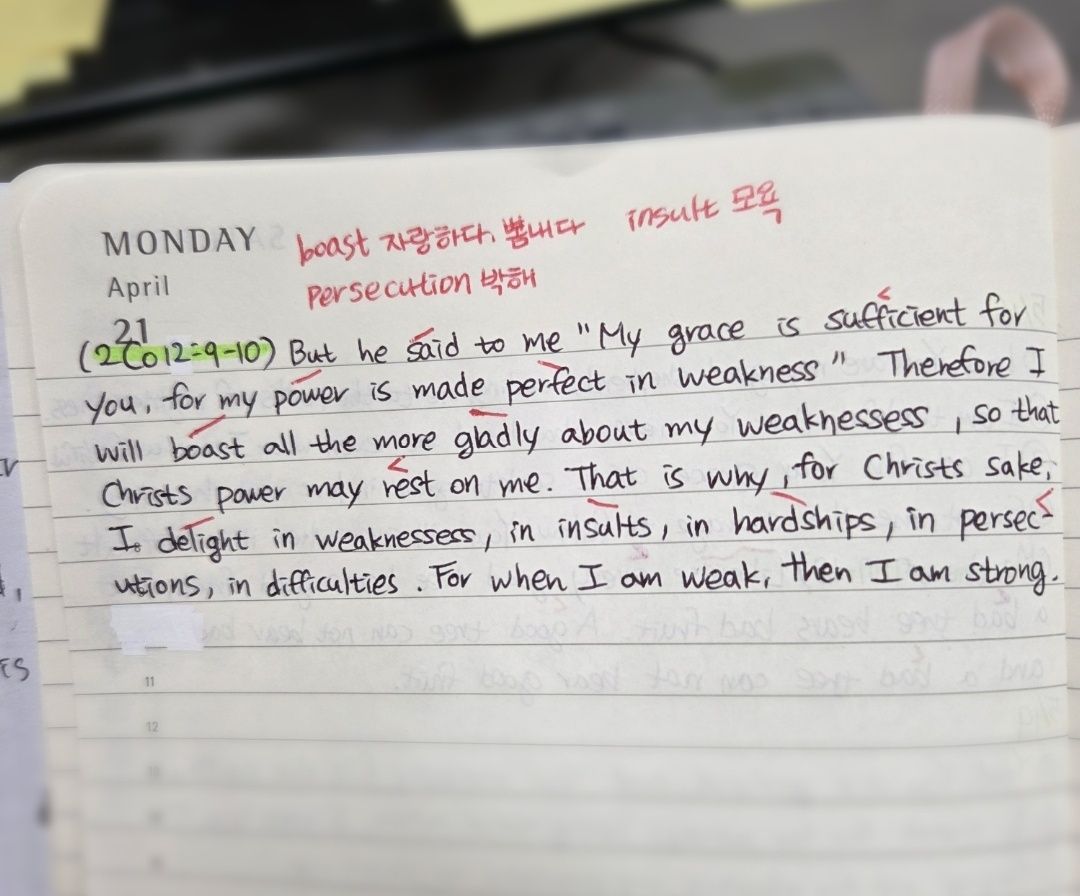 MONDAY
April
21
boast 자랑하다, 뽐내다 insult 모욕
persecution 박해
(2Co12:9-10) But he said to me "My grace is sufficient for
you, for my power is made perfect in weakness" Therefore I
will boast all the more gladly about my weaknessess, so that
Christs power may rest on me. That is why, for Christs sake,
I. delight in weaknessess, in insults, in hardships, in persec-
utions, in difficulties. For when I am weak, then I am strong.
11
12